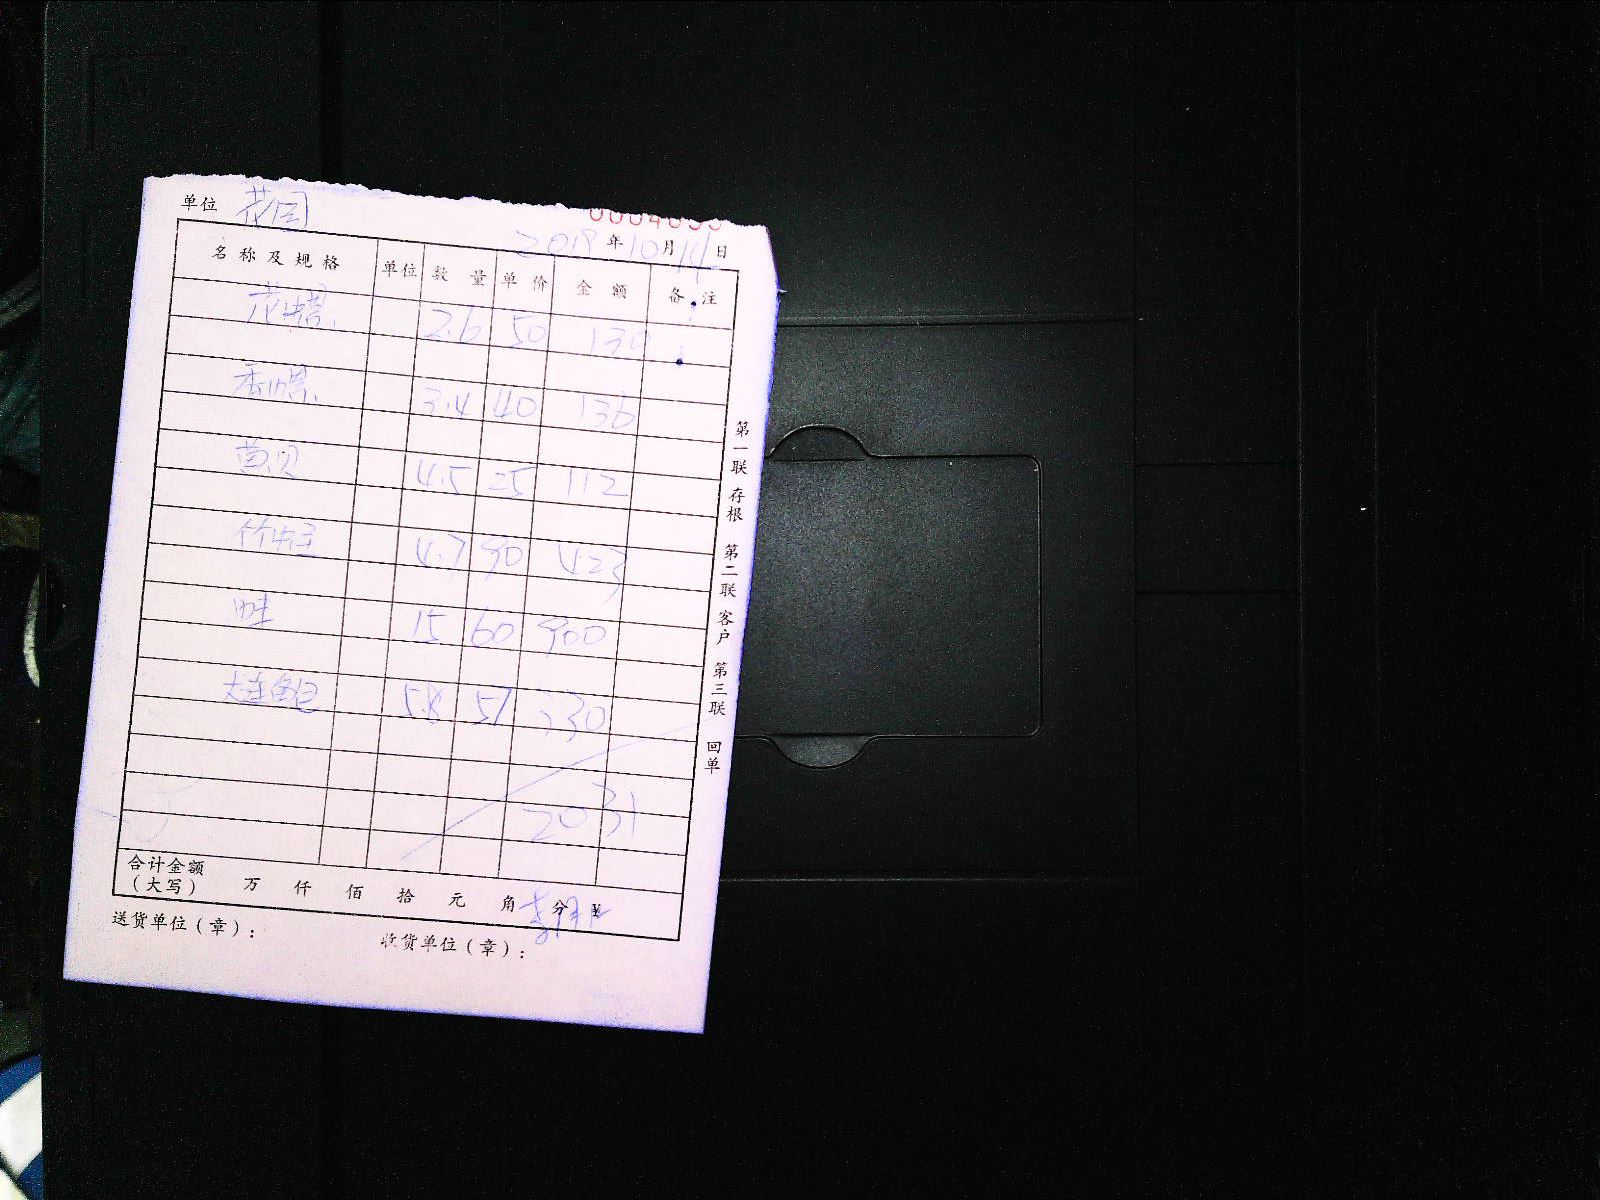 单位 花园
2019年10月14日
名称及规格 单位 数量 单价 金额 备注
花螺 2.6 50 130
香螺 3.4 40 136
4.5 25 112
竹蛏 4.7 90 423
15 60 900
大连鲍 5.8 57 330
2031
合计金额
(大写) 万 仟 佰 拾 元 角 分 ¥
送货单位(章):
收货单位(章):
第一联 存根 第二联 客户 第三联 回单